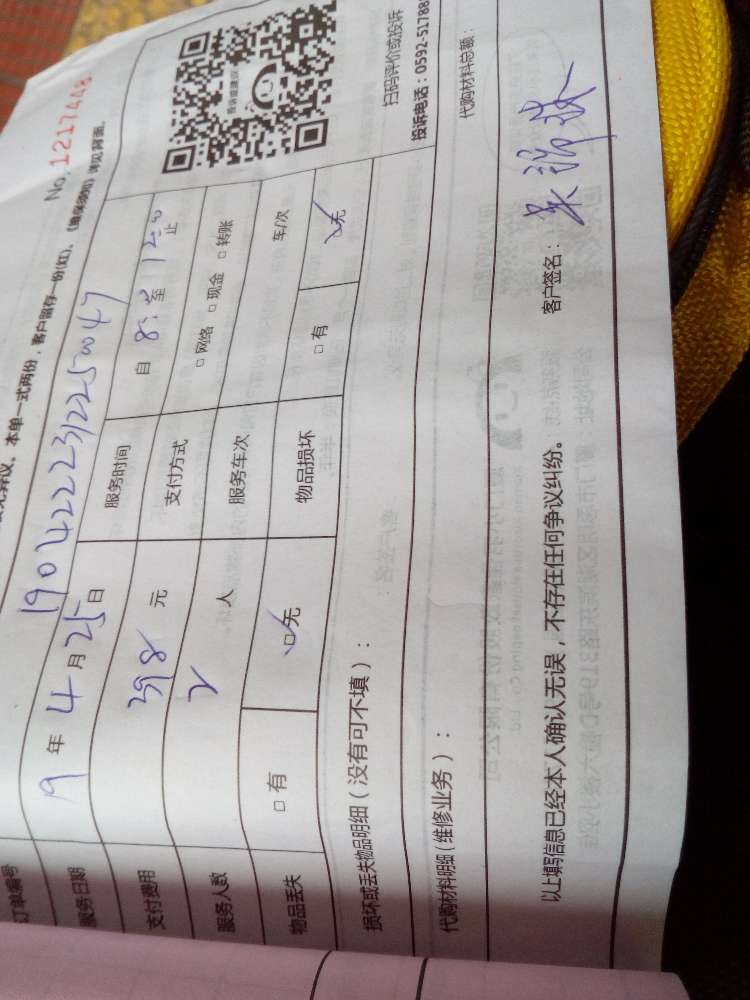 No. 1217448
本单一式两份，客户留存一份(红)。《确保须知》详见背面。
订单编号 1904222312250047
服务日期 19 年 4 月 25 日 服务时间 自 8:30 至 12:00 止
支付费用 398 元 支付方式 □ 网络 □ 现金 □ 转账
服务人数 2 人 服务车次 车/次
物品丢失 □ 有 □ 无 物品损坏 □ 有 □ 无
扫码评价或投诉
投诉电话：0592-51788
损坏或丢失物品明细（没有可不填）：
代购材料明细（维修业务）：
代购材料总额：
以上填写信息已经本人确认无误，不存在任何争议纠纷。
客户签名：